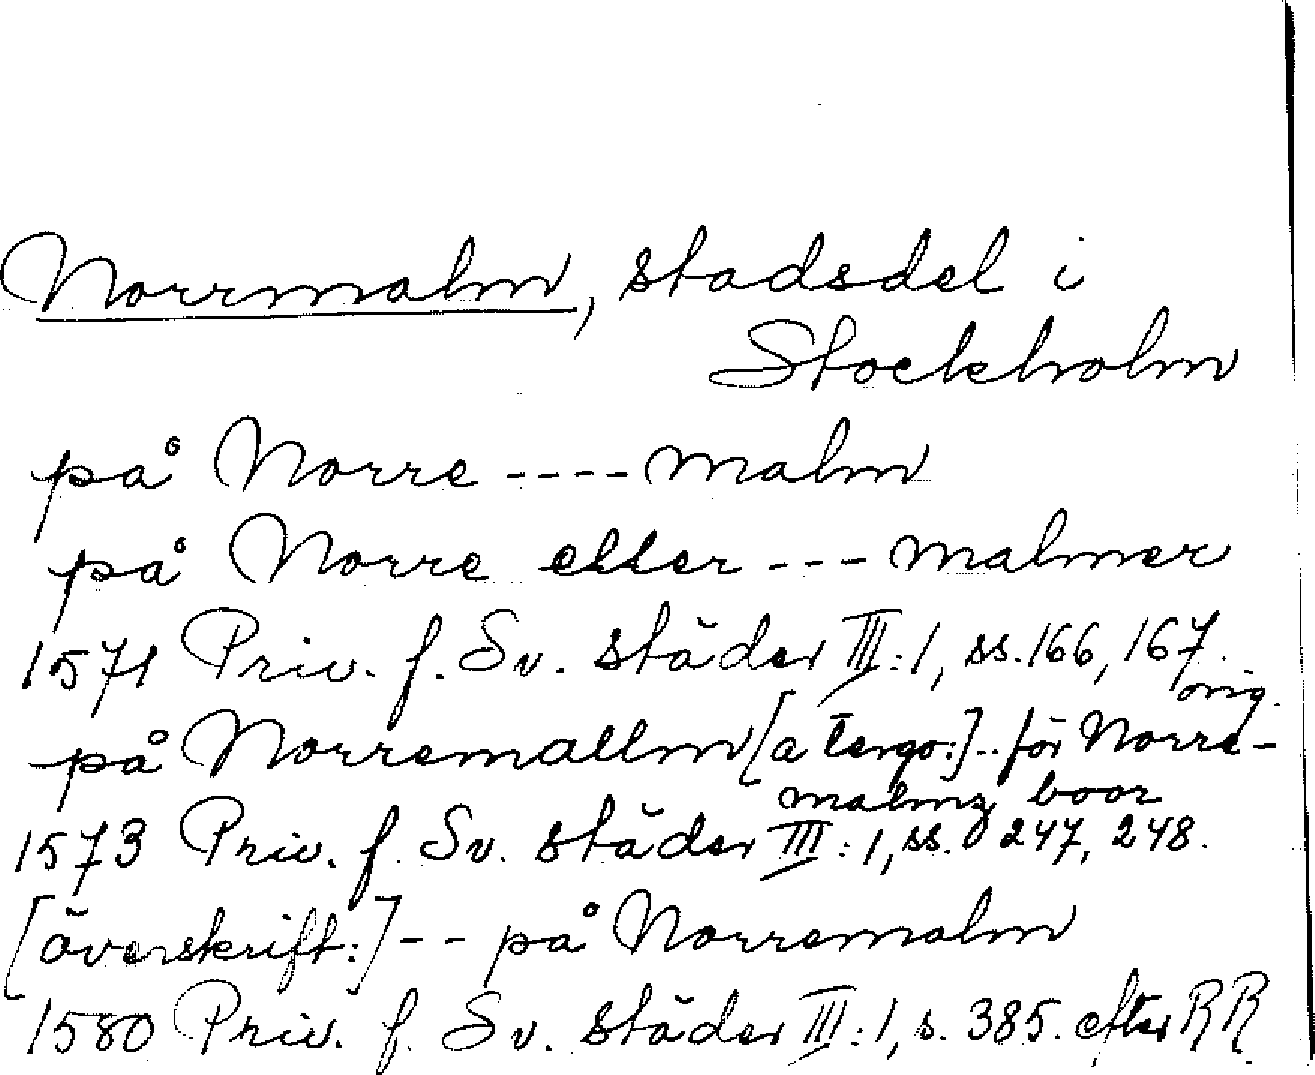 Norrmalm, stadsdel i
Stockholm
på Norre ---- malm
på Norre eller --- malmer
1571 Priv. f. Sv. städer III:1, ss. 166, 167.
orig.
på Norremallm [a tergo:] -- för Norre-
malmz boor
1573 Priv. f. Sv. städer III:1, ss. 247, 248.
[överskrift:] -- på Norremalm
1580 Priv. f. Sv. städer III:1, s. 385. efter RR